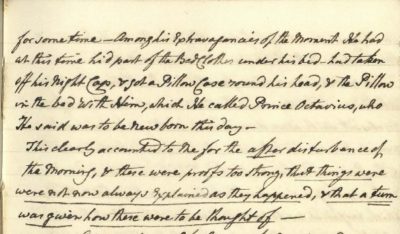 for some time — Among his Extravagancies of the Moment He had
at this time hid part of the Bed Clothes under his bed — had taken
off his Night Cap, & got a Pillow Case round his head, & the Pillow
in the bed with Him, which He called Prince Octavius, who
He said was to be new born this day —
This clearly accounted to me for the after disturbance of
the Morning, & these were proofs too strong, that things were
were not now always explained as they happened, & that a turn
was given how these were to be thought of —